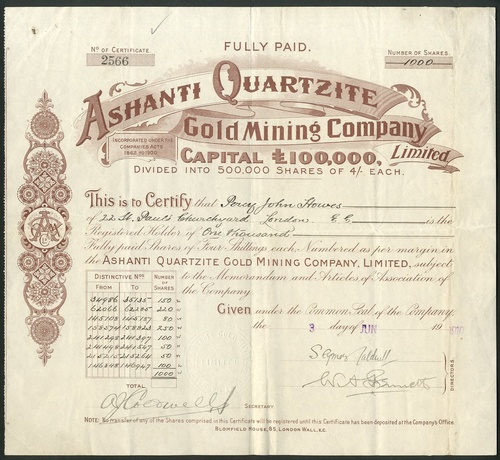 FULLY PAID.
No OF CERTIFICATE.
2566
NUMBER OF SHARES.
1000
ASHANTI QUARTZITE
Gold Mining Company
Limited.
INCORPORATED UNDER THE
COMPANIES ACTS
1862 TO 1900.
CAPITAL £100,000,
DIVIDED INTO 500,000 SHARES OF 4/- EACH.
This is to Certify that Percy John Howes
of 22 St. Pauls Churchyard London E.C. is the
Registered Holder of One thousand
Fully paid Shares of Four Shillings each, Numbered as per margin in
the ASHANTI QUARTZITE GOLD MINING COMPANY, LIMITED, subject
to the Memorandum and Articles of Association of
the Company.
DISTINCTIVE Nos
NUMBER OF SHARES
FROM TO
34986 35135 150
62066 62285 220
145108 145187 80
158574 158823 250
241298 241397 100
241498 241547 50
245215 245264 50
100
1000
TOTAL
Given under the Common Seal of the Company
the 3 day of JUN 19
DIRECTORS.
SECRETARY.
NOTE: No transfer of any of the Shares comprised in this Certificate will be registered until this Certificate has been deposited at the Company's Office.
BLOMFIELD HOUSE, 85, LONDON WALL. E.C.